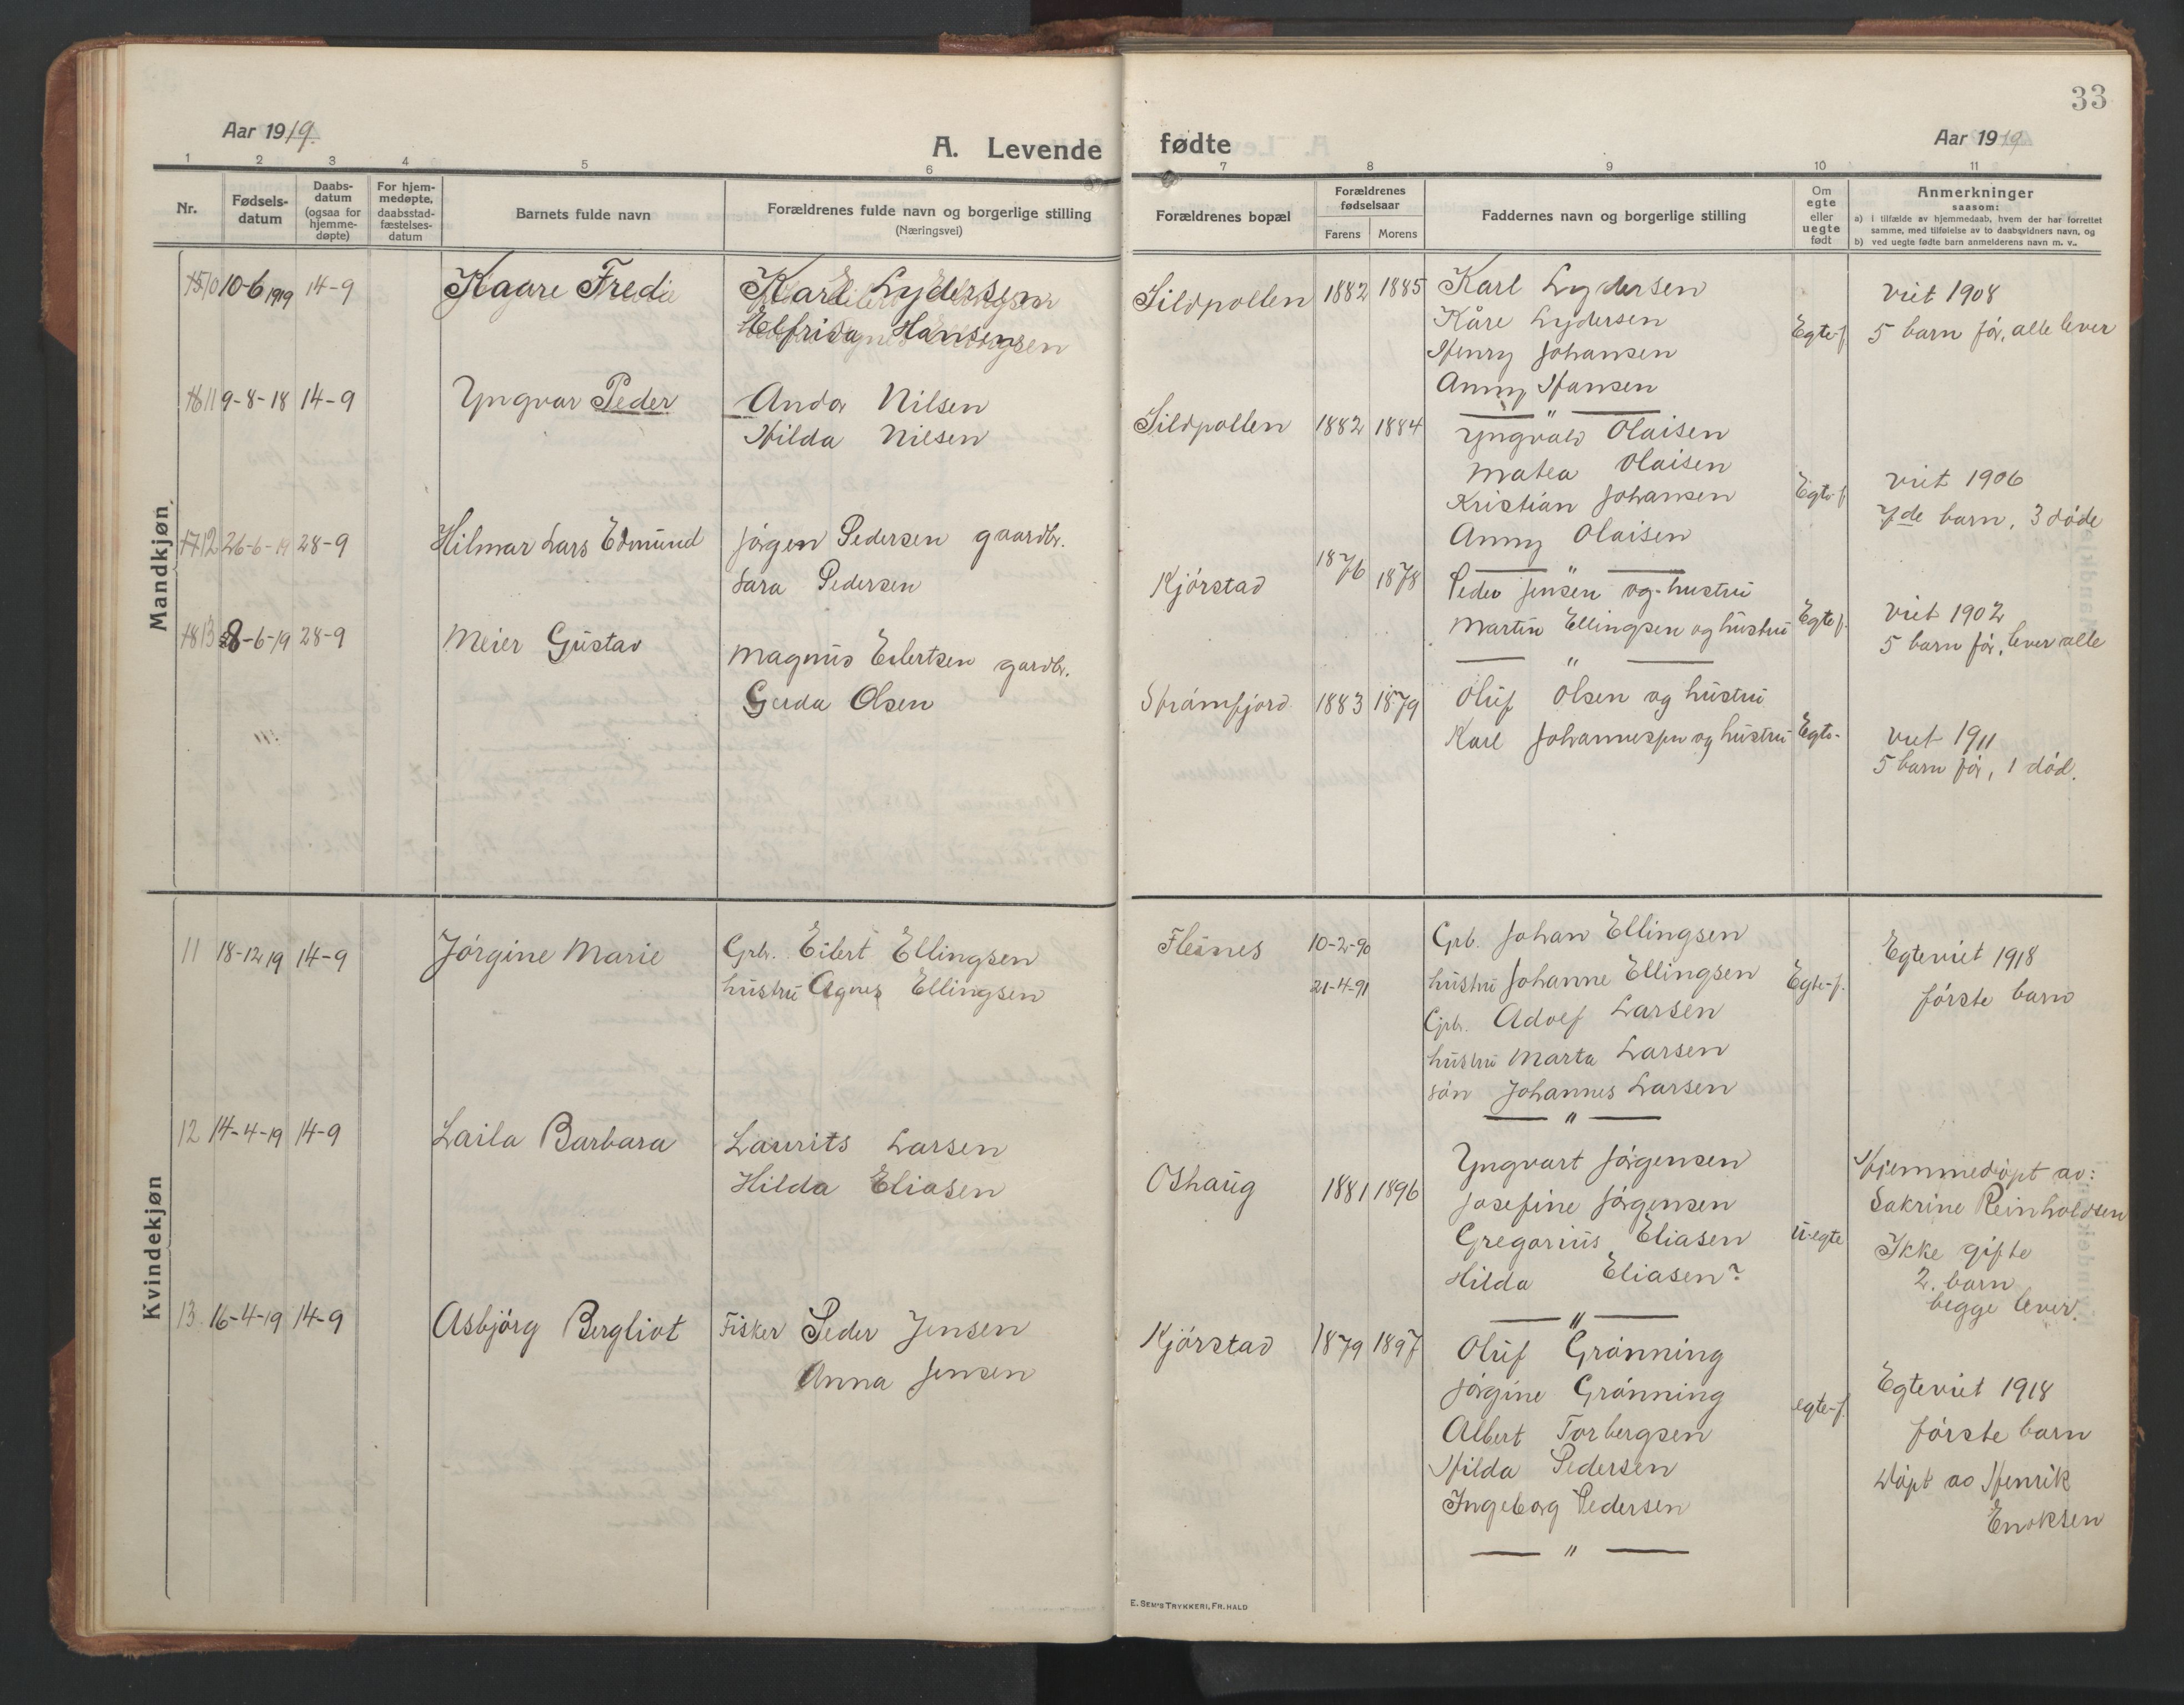 33
Aar 1919.
A. Levende fødte
Aar 1919
1 2 3 4 5 6 7 8 9 10 11
Nr.
Fødsels-
datum
Daabs-
datum
(ogsaa for
hjemme-
døpte)
For hjem-
medøpte,
daabsstad-
fæstelses-
datum
Barnets fulde navn
Forældrenes fulde navn og borgerlige stilling
(Næringsvei)
Forældrenes bopæl
Forældrenes
fødselsaar
Farens Morens
Faddernes navn og borgerlige stilling
Om
egte
eller
uegte
født
Anmerkninger
saasom:
a) i tilfælde av hjemmedaab, hvem der har forrettet
samme, med tilføielse av to daabsvidners navn, og
b) ved uegte fødte barn anmelderens navn m. v..
Mandkjøn.
10 10-6 1919 14-9 Kaare Fredi Karl Lydersen
Elfrida Hansen
Sildpollen 1882 1885 Karl Lydersen
Kåre Lydersen
Henry Johansen
Anny Hansen
Egte-f.
viet 1908
5 barn før, alle lever
11 9-8-18 14-9 Yngvar Peder Andor Nilsen
Hilda Nilsen
Sildpollen 1882 1884 Yngvald Olaisen
Matea Olaisen
Kristian Johansen
Anny Olaisen
Egte-f.
viet 1906
7de barn, 3 døde
12 26-6-19 28-9 Hilmar Lars Edmund Jørgen Pedersen gaardbr.
Sara Pedersen
Kjørstad 1876 1878 Peder Jensen og hustru
Martin Ellingsen og hustru
Egte f.
viet 1902
5 barn før, lever alle
13 8-6-19 28-9 Meier Gustav Magnus Eilertsen gardbr.
Gerda Olsen
Strømfjord 1883 1879 Oluf Olsen og hustru
Karl Johannessen og hustru
Egte-
viet 1911
5 barn før, 1 død.
Kvindekjøn
11 18-12 19 14-9 Jørgine Marie Grbr. Eilert Ellingsen
hustru Agnes Ellingsen
Fleines 10-2-90
21-4-91
Grb. Johan Ellingsen
hustru Johanne Ellingsen
Grbr. Adolf Larsen
hustru Marta Larsen
søn Johannes Larsen
Egte-f.
Egteviet 1918
første barn
12 14-4-19 14-9 Laila Barbara Laurits Larsen
Hilda Eliasen
Oshaug 1881 1896 Yngvart Jørgensen
Josefine Jørgensen
Gregorius Eliasen
Hilda Eliasen?
U-egte
Hjemmedøpt av:
Sakrine Reinholdsen
Ikke gifte
2. barn
begge lever.
13. 16-4-19 14-9 Asbjørg Bergliot Fisker Peder Jensen
Anna Jensen
Kjørstad 1879 1897 Oluf Grønning
Jørgine Grønning
Albert Torbergsen
Hilda Pedersen
Ingeborg Pedersen
egte-f.
Egteviet 1918
første barn
Døpt av Henrik
Enoksen
E. SEM'S TRYKKERI, FR.HALD